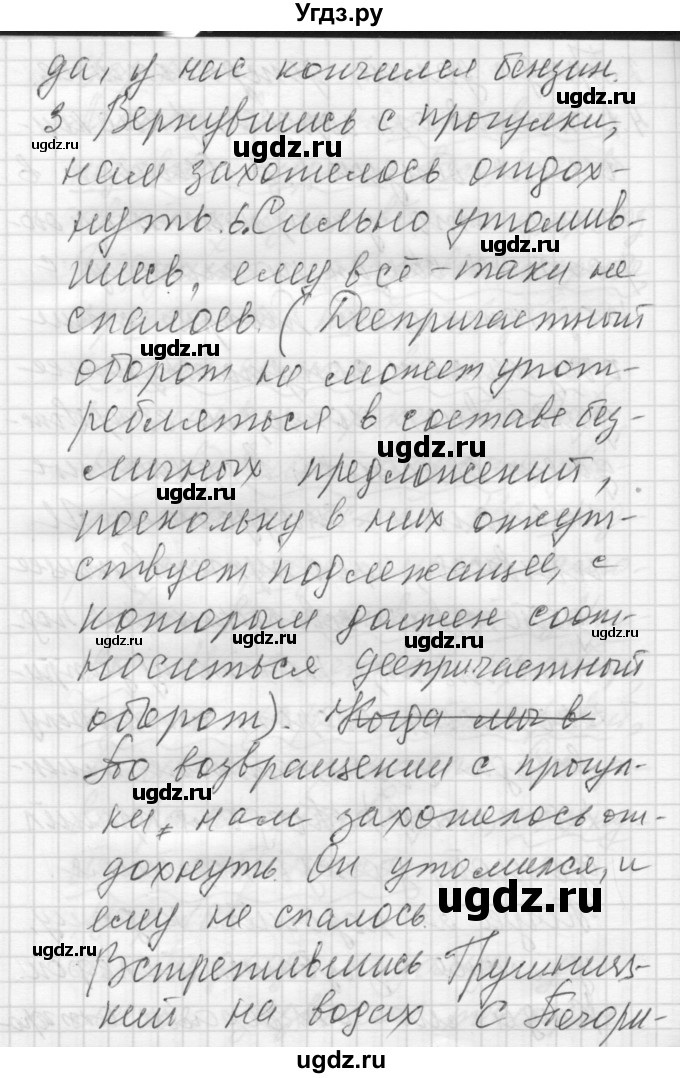 Угдз.ру
да, у нас кончился бензин.
ugdz.ru
3 Вернувшись с прогулки,
ugdz.ru ugdz.ru
нам захотелось отдох-
нуть. 6. Сильно утомив-
ugdz.ru
шись, ему всё-таки не
спалось. (Деепричастный
ugdz.ru
оборот не может упот-
ребляться в составе без-
ugdz.ru
личных предложений,
ugdz.ru
поскольку в них отсут-
ствует подлежащее, с
которым должен соот-
ugdz.ru ugdz.ru ugdz.ru ugdz.ru
носиться деепричастный
оборот). Когда мы в
По возвращении с прогул-
ки, нам захотелось от-
ugdz.ru
дохнуть. Он утомился, и
ugdz.ru
ему не спалось.
ugdz.ru
Встретившись Грушниц-
кий на водах с Печори-
ugdz.ru